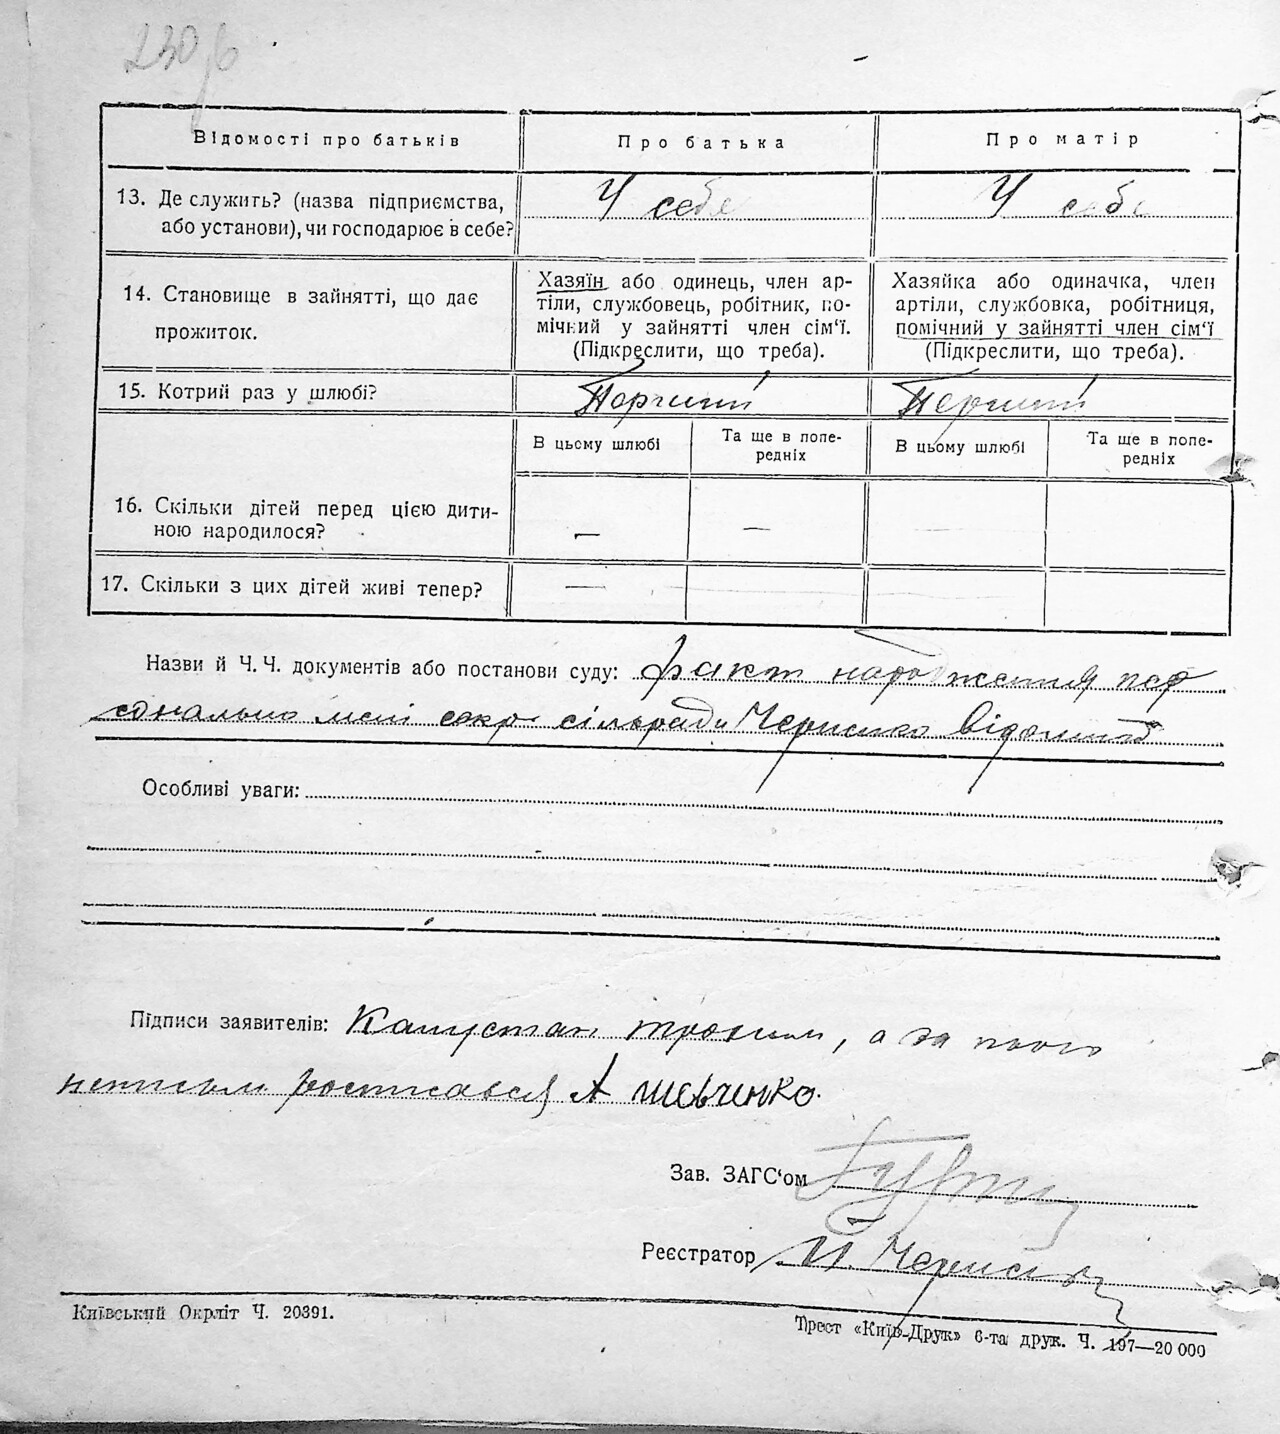 230
Відомості про батьків
Про батька
Про матір
13. Де служить? (назва підприємства,
або установи), чи господарює в себе?
У себе
У себе
14. Становище в зайнятті, що дає
прожиток.
Хазяїн або одинець, член ар-
тіли, службовець, робітник, по-
мічний у зайнятті член сім'ї.
(Підкреслити, що треба).
Хазяйка або одиначка, член
артіли, службовка, робітниця,
помічний у зайнятті член сім'ї
(Підкреслити, що треба).
15. Котрий раз у шлюбі?
Перший
Перший
В цьому шлюбі
Та ще в попе-
редніх
В цьому шлюбі
Та ще в попе-
редніх
16. Скільки дітей перед цією дити-
ною народилося?
—
—
—
17. Скільки з цих дітей живі тепер?
—
Назви й Ч. Ч. документів або постанови суду: факт народження пер
сонально мені секр сільради
Особливі уваги:
Підписи заявителів: Капустян Трохим, а за нього
неписьм росписався А Шевченко.
Зав. ЗАГС'ом
Реєстратор
Київський Окрліт Ч. 20391.
Трест «Київ-Друк» 6-та друк. Ч. 197—20 000